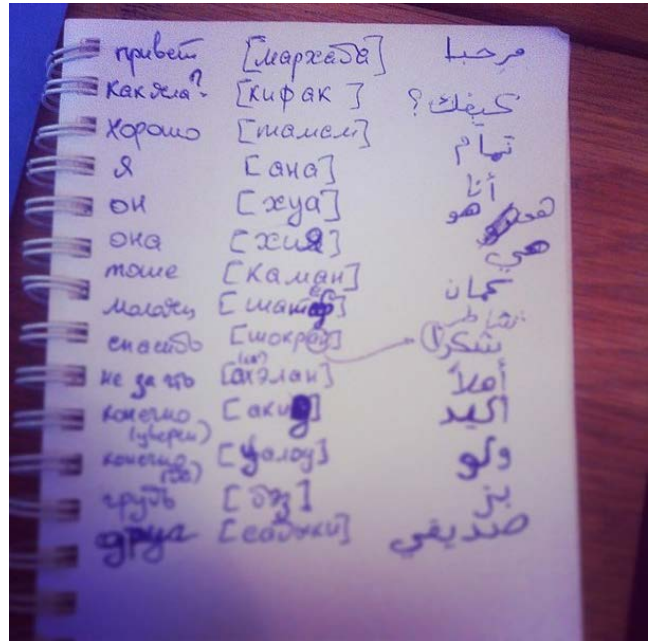 привет [мархаба] مرحبا
Как дела? [кифак] كيفك؟
хорошо [тамам] تمام
я [ана] أنا
он [хуа] هو
она [хия] هي
тоже [каман] كمان
молодец [шатер] شاطر
спасибо [шокран] شكراً
не за что [ахэлан] أهلاً
конечно (уверен) [акид] اكيد
конечно [уалоу] ولو
грудь [бз] بز
друг [садыки] صديقي